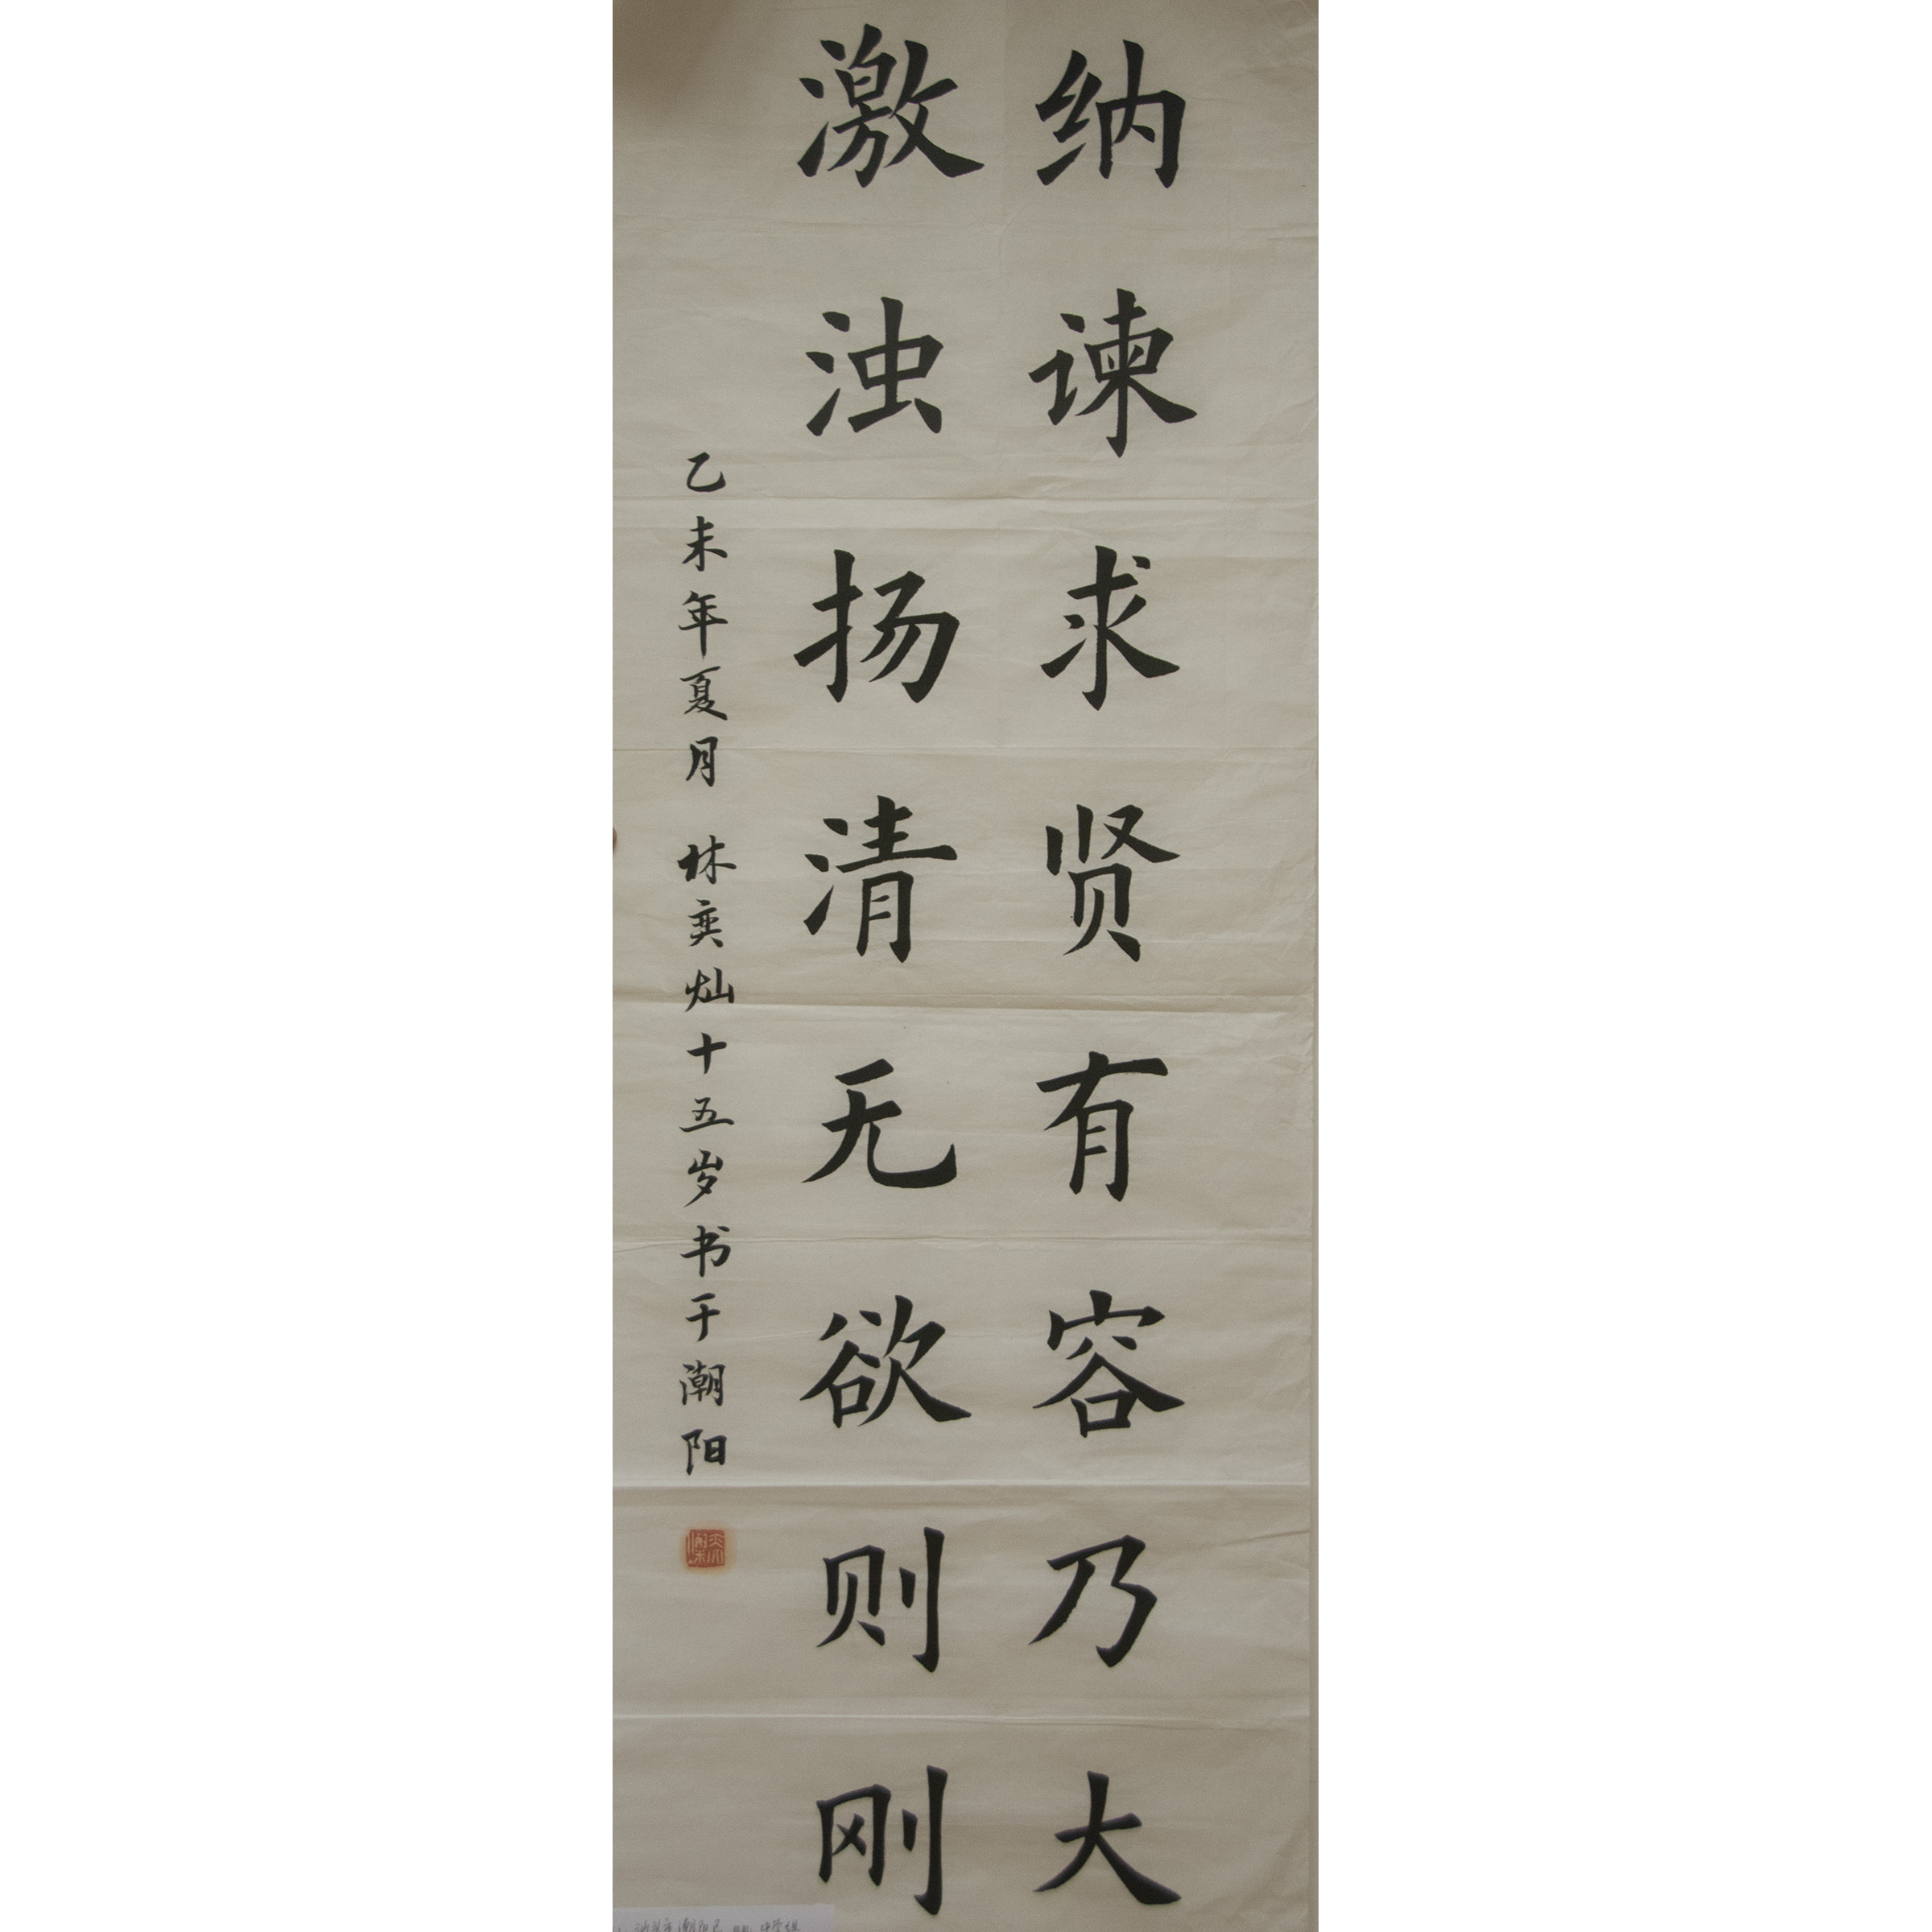 纳谏求贤有容乃大
激浊扬清无欲则刚
乙未年夏月 林奕灿十五岁书于潮阳